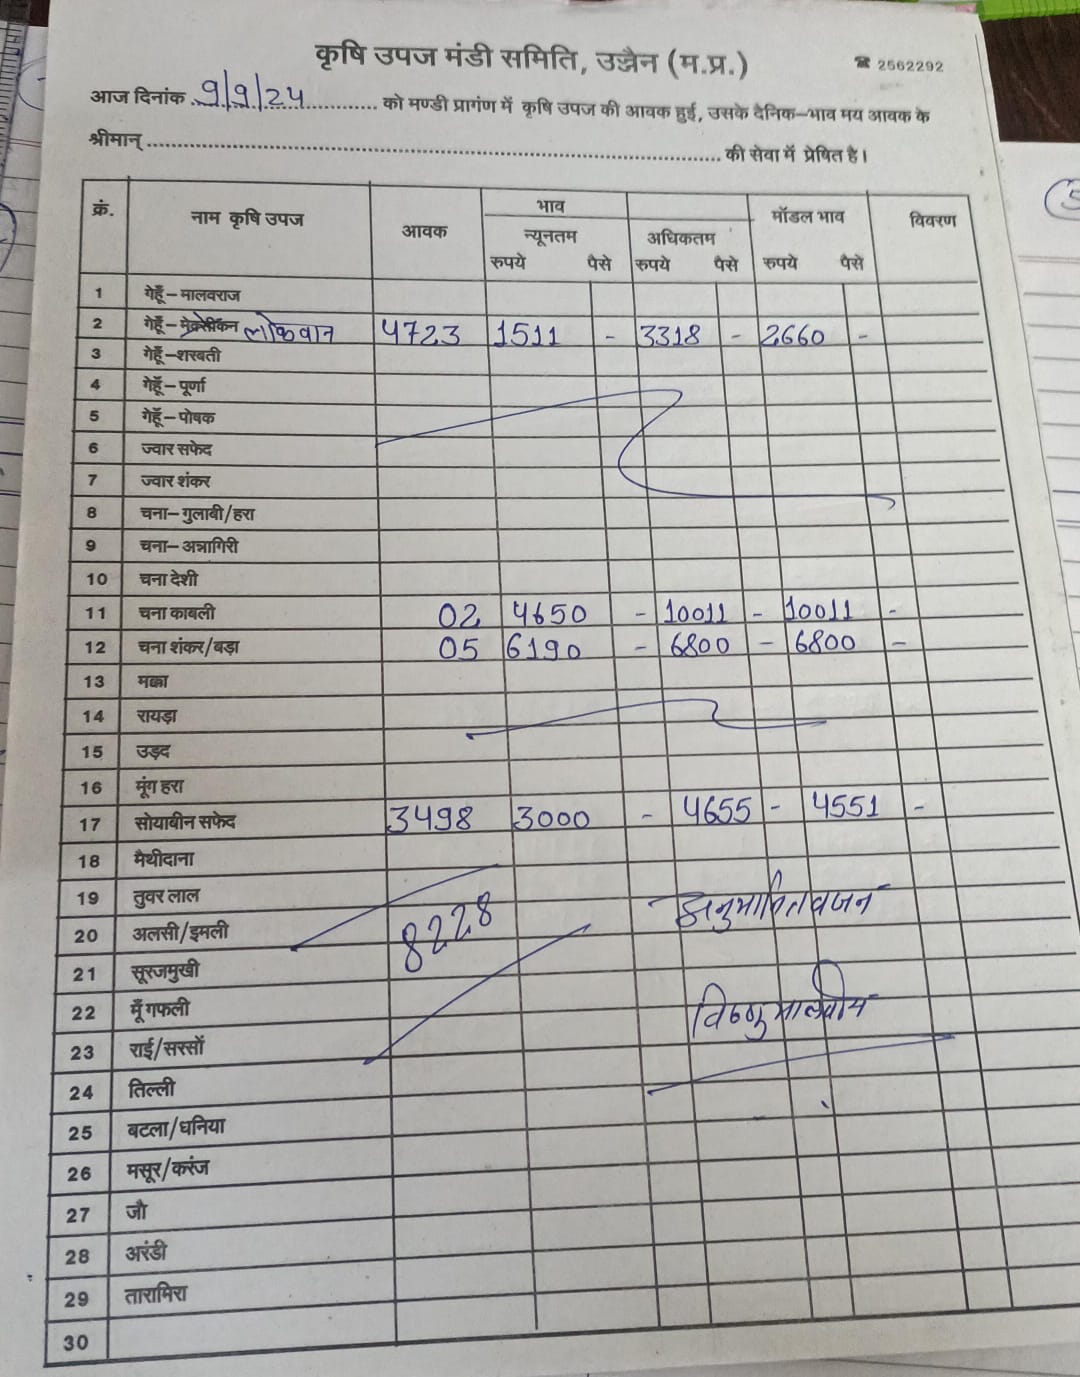 कृषि उपज मंडी समिति, उज्जैन (म.प्र.) ☎ 2562292
आज दिनांक 9/9/24 को मण्डी प्रागंण में कृषि उपज की आवक हुई, उसके दैनिक–भाव मय आवक के
श्रीमान् की सेवा में प्रेषित है।
क्रं. नाम कृषि उपज आवक भाव मॉडल भाव विवरण
न्यूनतम अधिकतम
रुपये पैसे रुपये पैसे रुपये पैसे
1 गेहूँ–मालवराज
2 गेहूँ–मेक्सीकॅन लोकवान 4723 1511 - 3318 - 2660 -
3 गेहूँ–शरबती
4 गेहूँ–पूर्णा
5 गेहूँ–पोषक
6 ज्वार सफेद
7 ज्वार शंकर
8 चना–गुलाबी/हरा
9 चना–अन्नागिरी
10 चना देशी
11 चना काबली 02 4650 - 10011 - 10011 -
12 चना शंकर/बड़ा 05 6190 - 6800 - 6800 -
13 मक्का
14 रायड़ा
15 उड़द
16 मूंग हरा
17 सोयाबीन सफेद 3498 3000 - 4655 - 4551 -
18 मैथीदाना
19 तुवर लाल
20 अलसी/इमली 8228 अनुमानित वजन
21 सूरजमुखी
22 मूँगफली विष्णु मालवीय
23 राई/सरसों
24 तिल्ली
25 बटला/धनिया
26 मसूर/करंज
27 जौ
28 अरंडी
29 तारामिरा
30